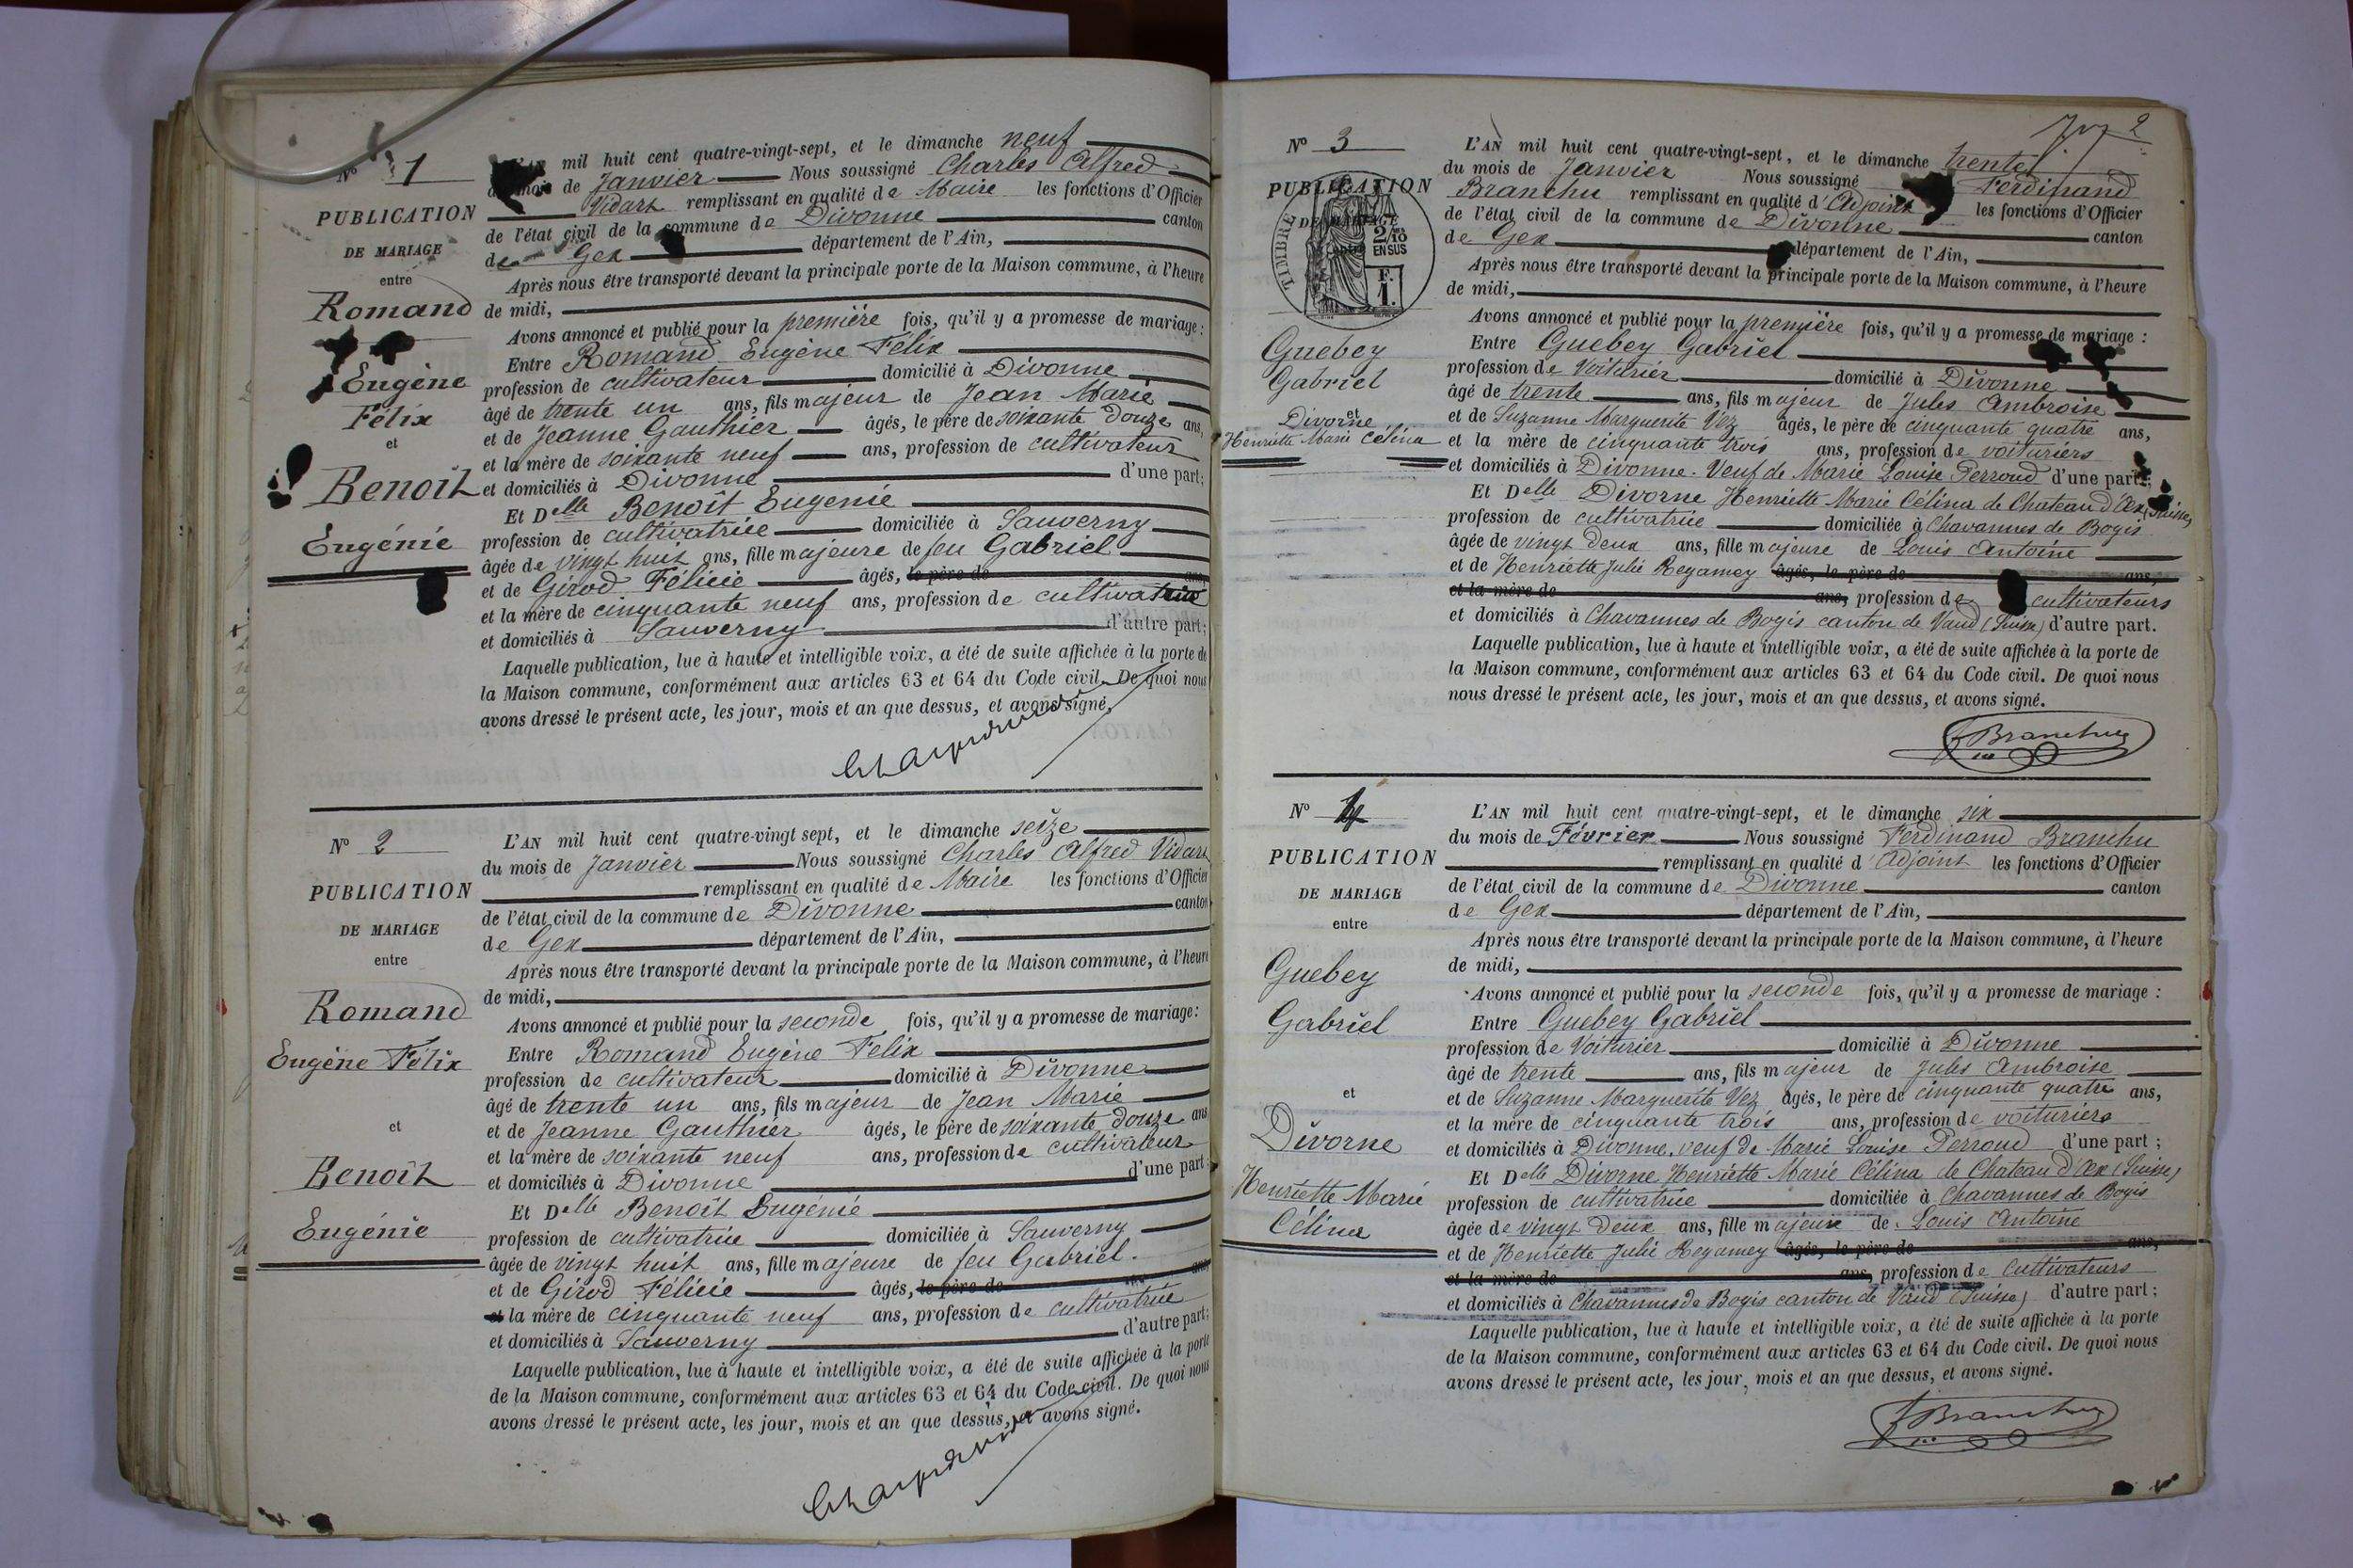 N° 1
PUBLICATION
DE MARIAGE
entre
Romand
Eugène
Félix
et
Benoît
Eugénie
L'AN mil huit cent quatre-vingt-sept, et le dimanche neuf
mois de Janvier Nous soussigné Charles Alfred
Vidart remplissant en qualité de Maire les fonctions d'Officier
de l'état civil de la commune de Divonne canton
de Gex département de l'Ain,
Après nous être transporté devant la principale porte de la Maison commune, à l'heure
de midi,
Avons annoncé et publié pour la première fois, qu'il y a promesse de mariage :
Entre Romand Eugène Félix
profession de cultivateur domicilié à Divonne
âgé de trente un ans, fils majeur de Jean Marie
et de Jeanne Gauthier âgés, le père de soixante douze ans,
et la mère de soixante neuf ans, profession de cultivateur
et domiciliés à Divonne d'une part;
Et Delle Benoît Eugénie
profession de cultivatrice domiciliée à Sauverny
âgée de vingt huit ans, fille majeure de feu Gabriel
et de Girod Félicie âgés, le père de ans,
et la mère de cinquante neuf ans, profession de cultivatrice
et domiciliés à Sauverny d'autre part;
Laquelle publication, lue à haute et intelligible voix, a été de suite affichée à la porte de
la Maison commune, conformément aux articles 63 et 64 du Code civil. De quoi nous
avons dressé le présent acte, les jour, mois et an que dessus, et avons signé.
N° 2
PUBLICATION
DE MARIAGE
entre
Romand
Eugène Félix
et
Benoît
Eugénie
L'AN mil huit cent quatre-vingt sept, et le dimanche seize
du mois de Janvier Nous soussigné Charles Alfred Vidart
remplissant en qualité de Maire les fonctions d'Officier
de l'état civil de la commune de Divonne canton
de Gex département de l'Ain,
Après nous être transporté devant la principale porte de la Maison commune, à l'heure
de midi,
Avons annoncé et publié pour la seconde fois, qu'il y a promesse de mariage :
Entre Romand Eugène Felix
profession de cultivateur domicilié à Divonne
âgé de trente un ans, fils majeur de Jean Marie
et de Jeanne Gauthier âgés, le père de soixante douze ans
et la mère de soixante neuf ans, profession de cultivateur
et domiciliés à Divonne d'une part
Et Delle Benoît Eugénie
profession de cultivatrice domiciliée à Sauverny
âgée de vingt huit ans, fille majeure de feu Gabriel.
et de Girod Félicie âgés, le père de ans
et la mère de cinquante neuf ans, profession de cultivatrice
et domiciliés à Sauverny d'autre part;
Laquelle publication, lue à haute et intelligible voix, a été de suite affichée à la porte
de la Maison commune, conformément aux articles 63 et 64 du Code civil. De quoi nous
avons dressé le présent acte, les jour, mois et an que dessus, et avons signé.
2
N° 3
PUBLICATION
DE MARIAGE
entre
TIMBRE
2/10
EN SUS
F.
1.
Guebey
Gabriel
et
Divorne
Henriette Marie Célina
L'AN mil huit cent quatre-vingt-sept, et le dimanche trente
du mois de Janvier Nous soussigné Ferdinand
Branchu remplissant en qualité d'Adjoint les fonctions d'Officier
de l'état civil de la commune de Divonne canton
de Gex département de l'Ain,
Après nous être transporté devant la principale porte de la Maison commune, à l'heure
de midi,
Avons annoncé et publié pour la première fois, qu'il y a promesse de mariage :
Entre Guebey Gabriel
profession de Voiturier domicilié à Divonne
âgé de trente ans, fils majeur de Jules Ambroise
et de Suzanne Marguerite Vez âgés, le père de cinquante quatre ans,
et la mère de cinquante trois ans, profession de voituriers
et domiciliés à Divonne. Veuf de Marie Louise Perroud d'une part;
Et Delle Divorne Henriette Marie Célina de Chateau d'Œx (Suisse)
profession de cultivatrice domiciliée à Chavannes de Bogis
âgée de vingt deux ans, fille majeure de Louis Antoine
et de Henriette Julie Regamey âgés, le père de ans,
et la mère de ans, profession de cultivateurs
et domiciliés à Chavannes de Bogis canton de Vaud (Suisse) d'autre part.
Laquelle publication, lue à haute et intelligible voix, a été de suite affichée à la porte de
la Maison commune, conformément aux articles 63 et 64 du Code civil. De quoi nous
nous dressé le présent acte, les jour, mois et an que dessus, et avons signé.
Branchu
N° 4
PUBLICATION
DE MARIAGE
entre
Guebey
Gabriel
et
Divorne
Henriette Marie
Célina
L'AN mil huit cent quatre-vingt-sept, et le dimanche six
du mois de Février Nous soussigné Ferdinand Branchu
remplissant en qualité d'Adjoint les fonctions d'Officier
de l'état civil de la commune de Divonne canton
de Gex département de l'Ain,
Après nous être transporté devant la principale porte de la Maison commune, à l'heure
de midi,
Avons annoncé et publié pour la seconde fois, qu'il y a promesse de mariage :
Entre Guebey Gabriel
profession de Voiturier domicilié à Divonne
âgé de trente ans, fils majeur de Jules Ambroise
et de Suzanne Marguerite Vez âgés, le père de cinquante quatre ans,
et la mère de cinquante trois ans, profession de voituriers
et domiciliés à Divonne, veuf de Marie Louise Perroud d'une part ;
Et Delle Divorne Henriette Marie Célina de Chateau d'Œx (Suisse)
profession de cultivatrice domiciliée à Chavannes de Bogis
âgée de vingt deux ans, fille majeure de Louis Antoine
et de Henriette Julie Regamey âgés, le père de ans,
et la mère de ans, profession de Cultivateurs
et domiciliés à Chavannes de Bogis canton de Vaud (Suisse) d'autre part ;
Laquelle publication, lue à haute et intelligible voix, a été de suite affichée à la porte
de la Maison commune, conformément aux articles 63 et 64 du Code civil. De quoi nous
avons dressé le présent acte, les jour, mois et an que dessus, et avons signé.
Branchu